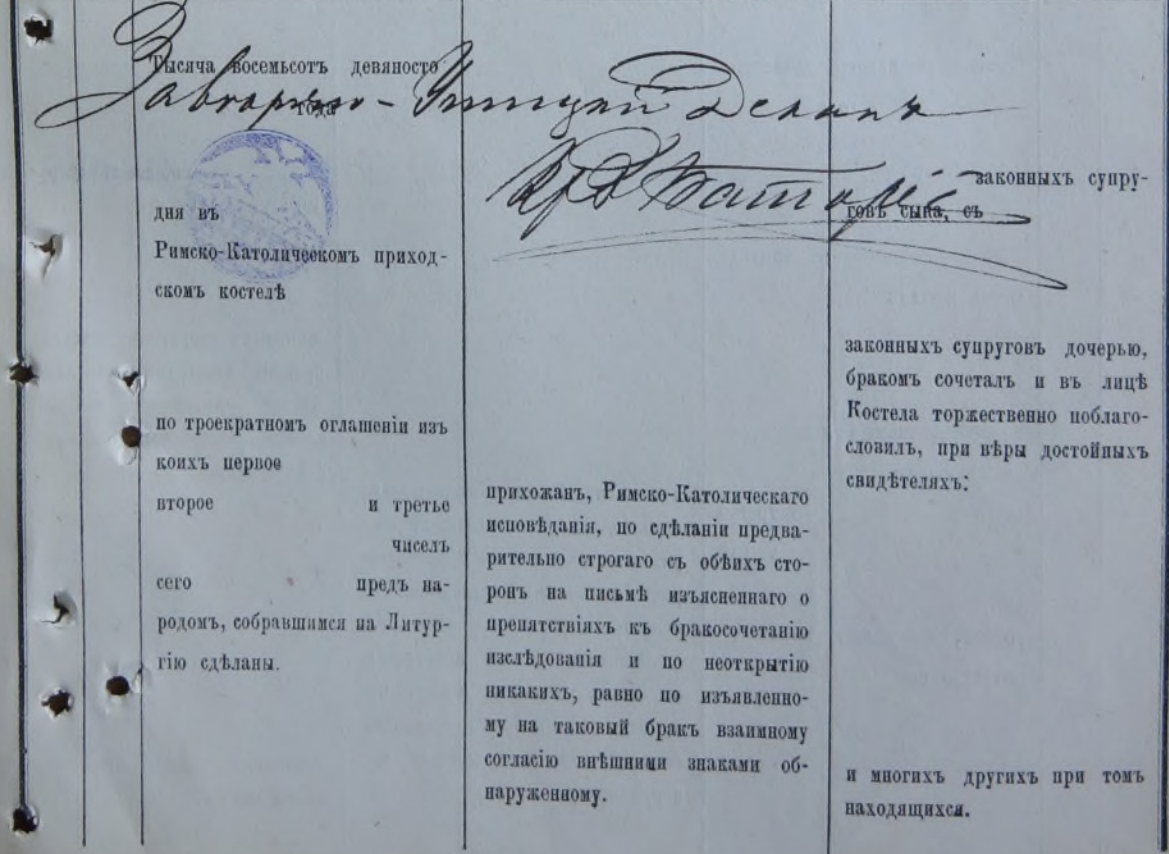 Тысяча восемьсотъ девяносто
года
дня въ
Римско-Католическомъ приход-
скомъ костелѣ
по троекратномъ оглашеніи изъ
коихъ первое
второе и третье
чиселъ
сего предъ на-
родомъ, собравшимся на Литур-
гію сдѣланы.
Деканъ
прихожанъ, Римско-Католическаго
исповѣданія, по сдѣланіи предва-
рительно строгаго съ обѣихъ сто-
ронъ на письмѣ изъясненнаго о
препятствіяхъ къ бракосочетанію
изслѣдованія и по неоткрытію
никакихъ, равно по изъявленно-
му на таковый бракъ взаимному
согласію внѣшними знаками об-
наруженному.
законныхъ супру-
говъ сына, съ
законныхъ супруговъ дочерью,
бракомъ сочеталъ и въ лицѣ
Костела торжественно поблаго-
словилъ, при вѣры достойныхъ
свидѣтеляхъ:
и многихъ другихъ при томъ
находящихся.